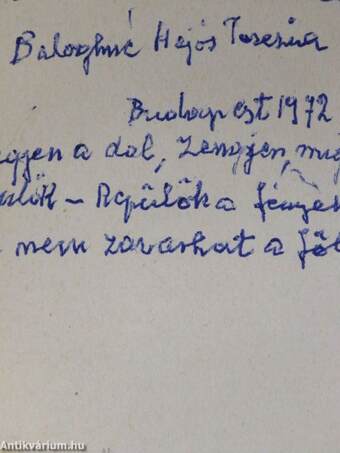 Baloghné Hajós Terézia
Budapest 1972
egyen a dal, Zengjen, míg
ülők - Repülők a fényes
nem zavarhat a föl
Antikvarium.hu